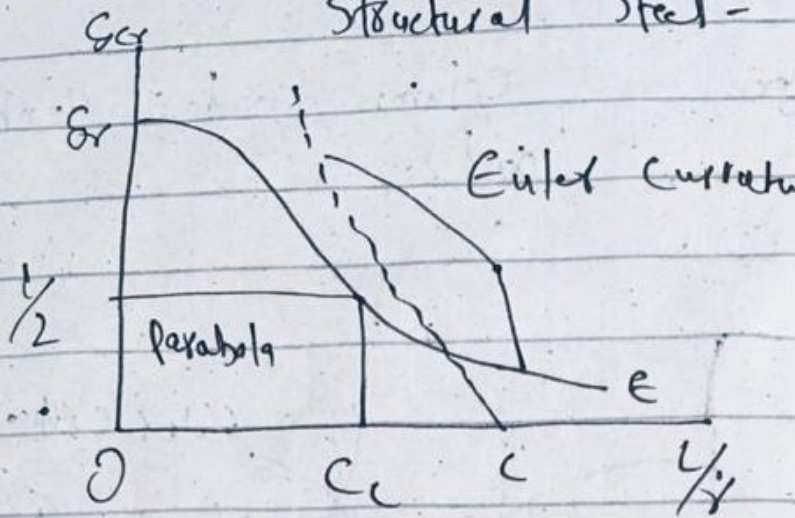 Structural Steel -
σcr
σr
Euler Curvatu
1/2
Parabola
E
O
Cc
C
L/r